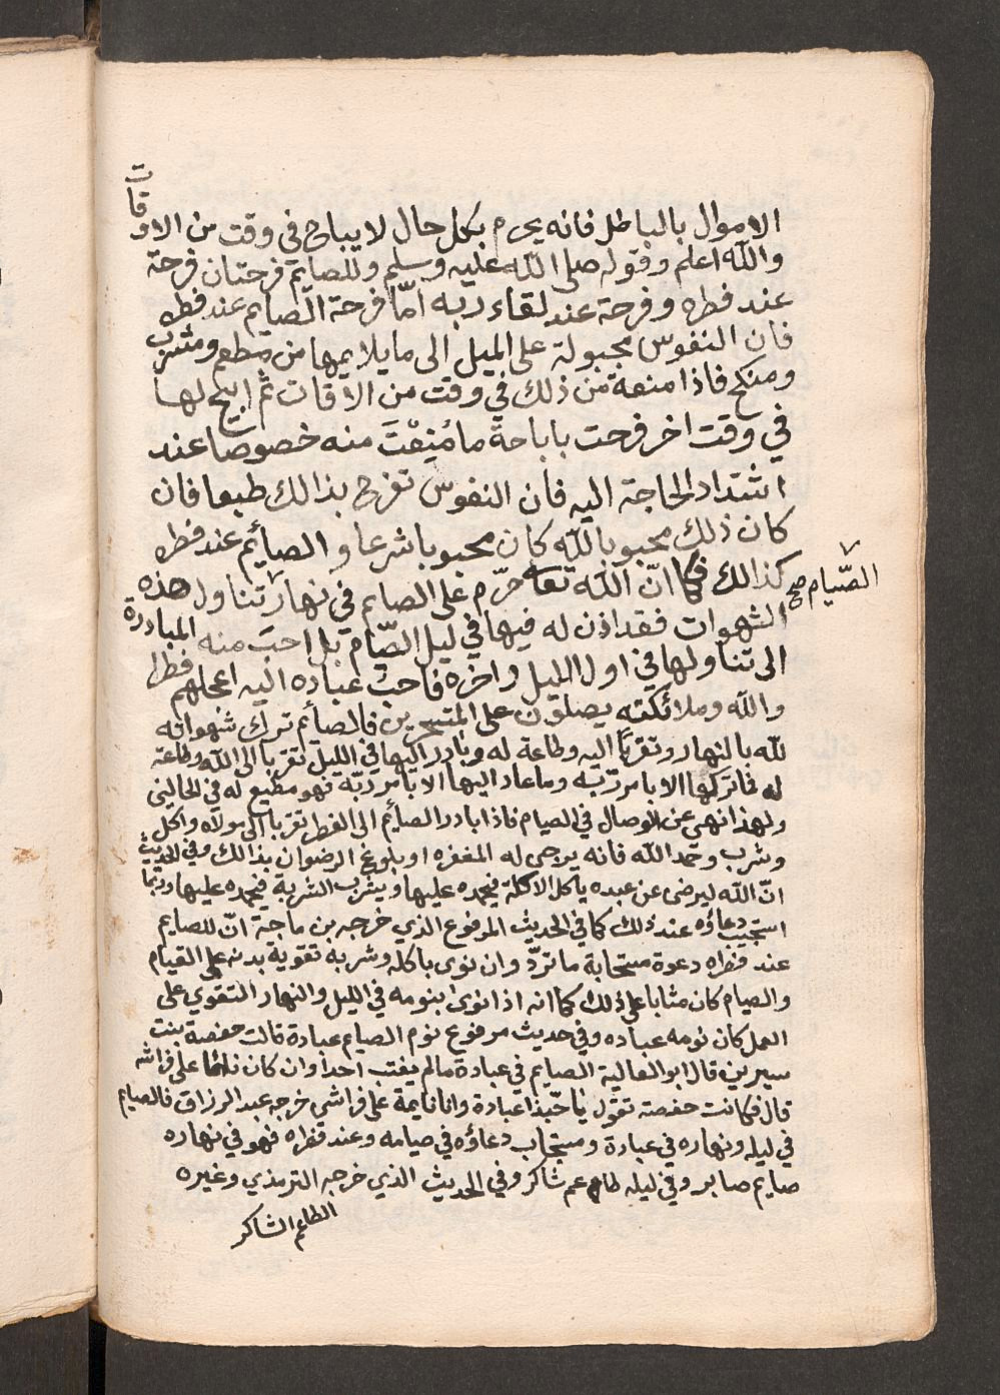 الاموال بالباطل فانه يحرم بكل حال لا يباح في وقت من الاوقات
والله اعلم وقوله صلى الله عليه وسلم وللصايم فرحتان فرحة
عند فطره وفرحة عند لقاء ربه امّا فرحة الصايم عند فطره
فان النفوس مجبولة على الميل الى ما يلايمها من مطعم ومشرب
ومنكح فاذا منعة من ذلك في وقت من الاقات ثم ابيح لها
في وقت اخر فرحت باباحة ما مُنِعْتَ منه خصوصا عند
اشتداد الحاجة اليه فان النفوس تفرح بذالك طبعا فان
كان ذلك محبوبا لله كان محبوبا شرعا والصائم عند فطره
كذالك فكما انّ الله تعا حرّم على الصايم في نهار تناول هذه
الصّيام صح
الشهوات فقد اذن له فيها في ليل الصّام بل احبّ منه المبادرة
الى تناولها في اول الليل واخره فاحبّ عباده اليه اعجلهم فطرا
والله وملائكته يصلون على المتسحرين فالصائم ترك شهواته
لله بالنهار وتقربًا اليه وطاعة له وبادر اليها في الليل تقربا الى الله وطاعة
له فما تركها الا بامر ربّه وما عاد اليها الا بامر ربّه فهو مطيع له في الحالين
ولهذا نهي عن الوصال في الصيام فاذا بادر الصائم الى الفطر تقربا الى مولاه واكل
وشرب وحمد الله فانه يرجى له المغفره او بلوغ الرضوان بذالك وفي الحديث
انّ الله ليرضى عن عبده ياكل الاكلة فيحمده عليها ويشرب الشربة فيحمده عليها وربما
استجيب دعاؤه عند ذلك كما في الحديث المرفوع الذي خرجه بن ماجة انّ للصايم
عند فطره دعوة مستجابة ما تردّ وان نوى باكله وشربه تقوية بدنه على القيام
والصيام كان مثابا على ذلك كما انه اذا نوى بنومه في الليل والنهار التقوي على
العمل كان نومه عباده وفي حديث مرفوع نوم الصايم عبادة قالت حفصة بنت
سيرين قال ابو العالية الصايم في عبادة مالم يغتب احدا وان كان نائما على فراشه
قال فكانت حفصة تقول يا حبّذا عبادة وانا نايمة على فراشي خرجه عبد الرزاق فالصايم
في ليله ونهاره في عبادة ومستجاب دعاؤه في صيامه وعند فطره فهو في نهاره
صايم صابر وفي ليله طاعم شاكر وفي الحديث الذي خرجه الترمذي وغيره
الطاعم الشاكر